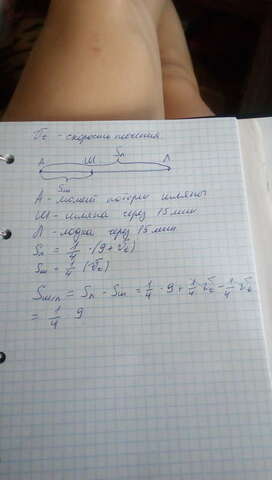 v₀ - скорость течения.
Sл
А Ш Л
Sш
А - момент потери шляпы
Ш - шляпа через 15 мин
Л - лодка через 15 мин
Sл = 1/4 · (9 + v₀)
Sш = 1/4 (v₀)
= Sл - Sш = 1/4 · 9 + 1/4 · v₀ - 1/4 v₀
= 1/4 · 9